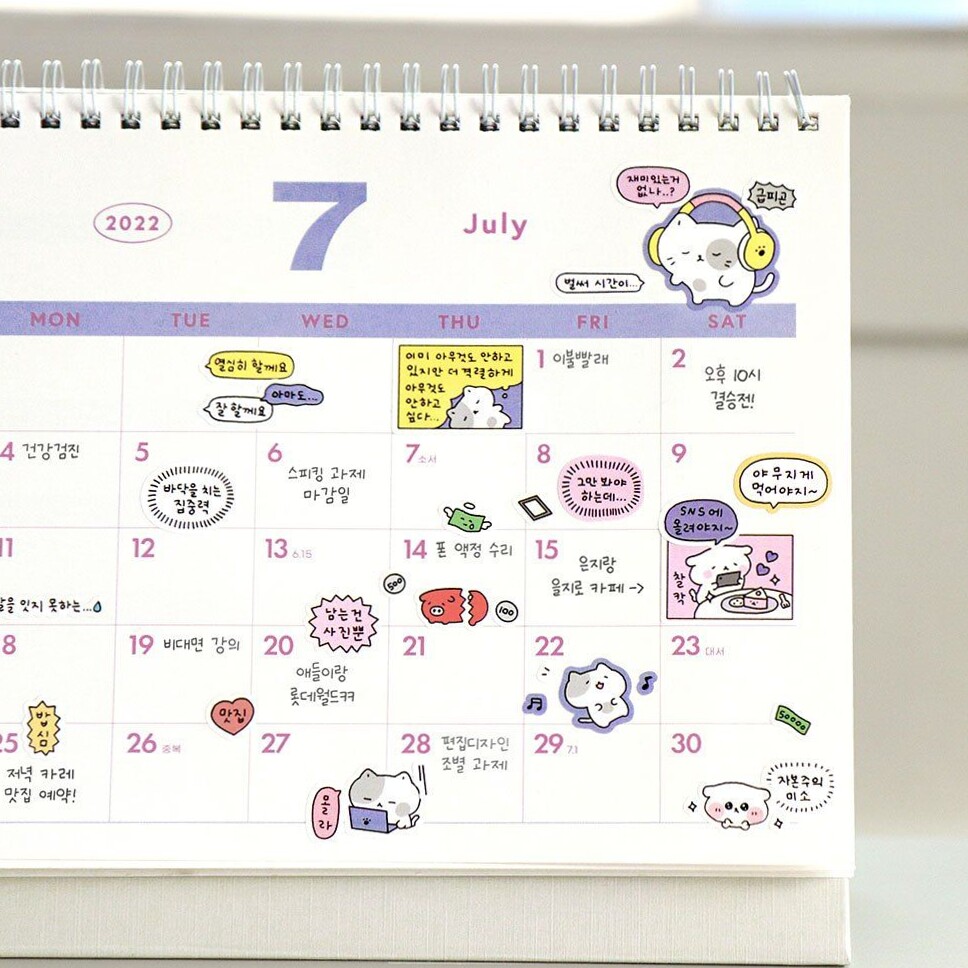 2022
7
July
재미있는거
없나..?
급피곤
벌써 시간이...
MON TUE WED THU FRI SAT
열심히 할께요
아마도...
잘할께요
이미 아무것도 안하고
있지만 더 격렬하게
아무것도
안하고
싶다...
1 이불빨래
2
오후 10시
결승전!
4 건강검진
5
바닥을 치는
집중력
6
스피킹 과제
마감일
7 소서
8
그만 봐야
하는데...
9
야무지게
먹어야지~
SNS에
올려야지~
11
을 잊지 못하는...
12
13 6.15
남는건
사진뿐
14 폰 액정 수리
500
100
15
은지랑
을지로 카페 →
찰칵
8
19 비대면 강의
맛집
20
애들이랑
롯데월드ㅋㅋ
21
22
23 대서
50000
25
밥심
저녁 카레
맛집 예약!
26 중복
27
몰라
28 편집디자인
조별 과제
29 7.1
30
자본주의
미소